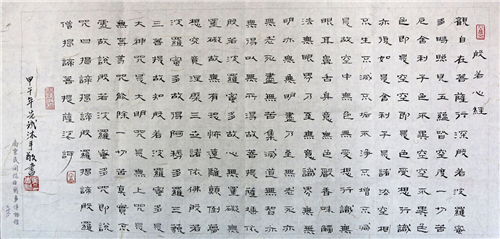 般若心經
觀自在菩薩行深般若波羅蜜
多時照見五蘊皆空度一切苦
厄舍利子色不異空空不異色
色即是空空即是色受想行識
亦復如是舍利子是諸法空相
不生不滅不垢不淨不增不減
是故空中無色無受想行識無
眼耳鼻舌身意無色聲香味觸
法無眼界乃至無意識界無無
明亦無無明盡乃至無老死亦
無老死盡無苦集滅道無智亦
無得以無所得故菩提薩埵依
般若波羅蜜多故心無罣礙無
罣礙故無有恐怖遠離顛倒夢
想究竟涅槃三世諸佛依般若
波羅蜜多故得阿耨多羅三藐
三菩提故知般若波羅蜜多是
大神咒是大明咒是無上咒是
無等等咒能除一切苦真實不
虛故說般若波羅蜜多咒即說
咒曰揭諦揭諦般羅揭諦般羅
僧揭諦菩提薩婆訶
甲午年沐手敬書
南京民間抗日戰爭博物館